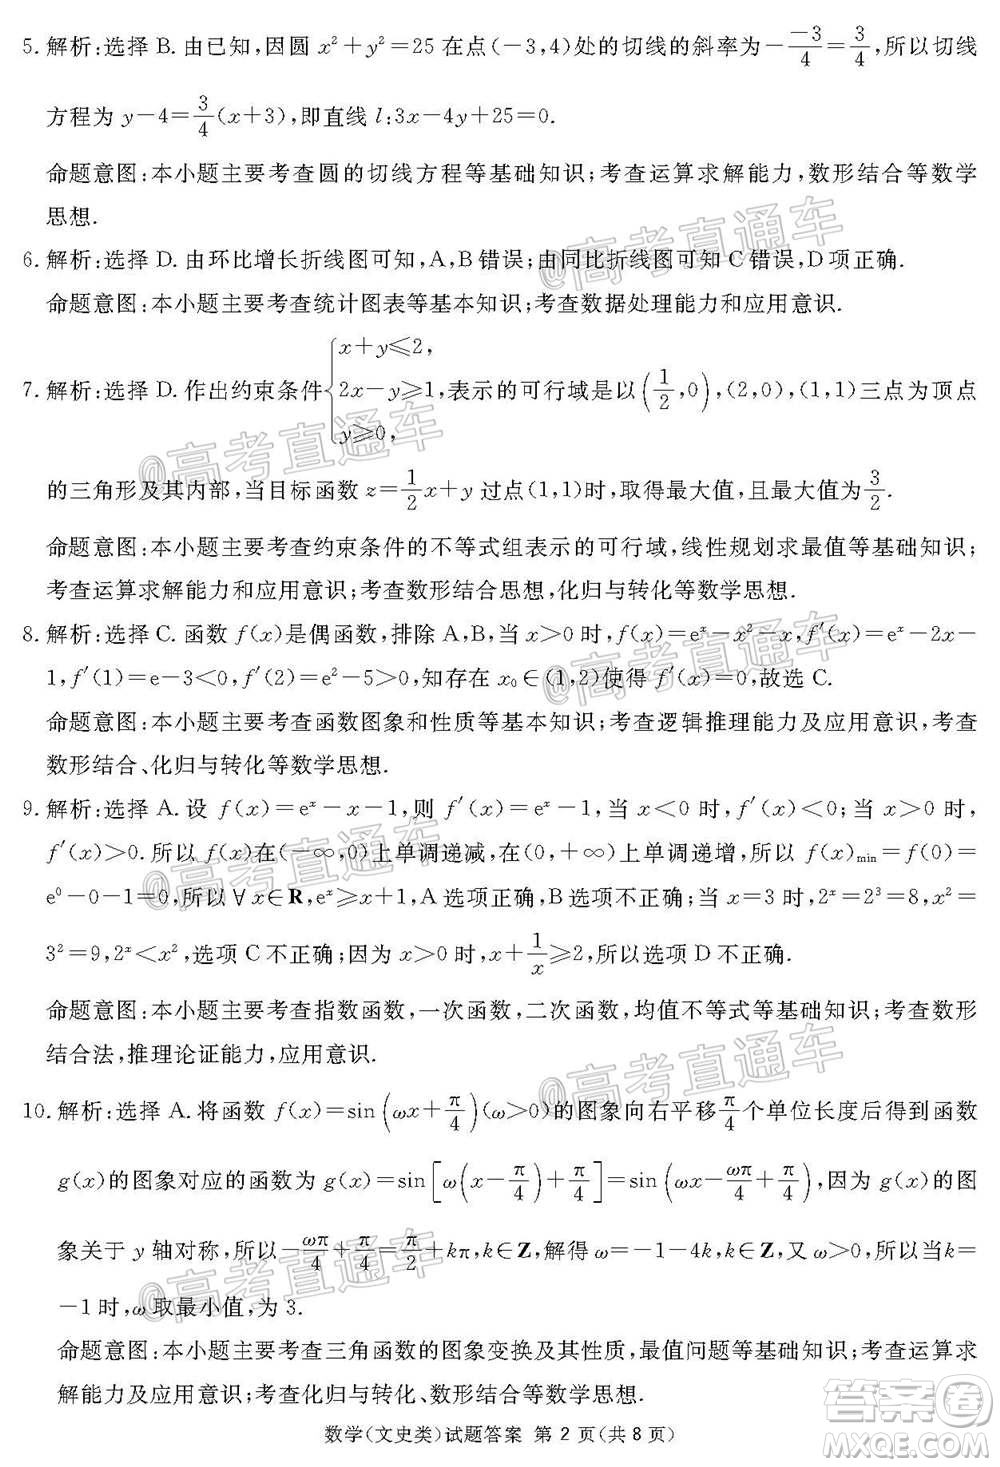 5. 解析:选择 B. 由已知,因圆 x²+y²=25 在点(-3,4)处的切线的斜率为-\frac{-3}{4}=\frac{3}{4},所以切线
方程为 y-4=\frac{3}{4}(x+3),即直线 l:3x-4y+25=0.
命题意图:本小题主要考查圆的切线方程等基础知识;考查运算求解能力,数形结合等数学
思想.
6. 解析:选择 D. 由环比增长折线图可知,A,B 错误;由同比折线图可知 C 错误,D 项正确.
命题意图:本小题主要考查统计图表等基本知识;考查数据处理能力和应用意识.
7. 解析:选择 D. 作出约束条件{x+y≤2, 2x-y≥1, y≥0, 表示的可行域是以(\frac{1}{2},0),(2,0),(1,1)三点为顶点
的三角形及其内部,当目标函数 z=\frac{1}{2}x+y 过点(1,1)时,取得最大值,且最大值为\frac{3}{2}.
命题意图:本小题主要考查约束条件的不等式组表示的可行域,线性规划求最值等基础知识;
考查运算求解能力和应用意识;考查数形结合思想,化归与转化等数学思想.
8. 解析:选择 C. 函数 f(x)是偶函数,排除 A,B,当 x>0 时,f(x)=eˣ-x²-x,f′(x)=eˣ-2x-
1,f′(1)=e-3<0,f′(2)=e²-5>0,知存在 x₀∈(1,2)使得 f′(x)=0,故选 C.
命题意图:本小题主要考查函数图象和性质等基本知识;考查逻辑推理能力及应用意识,考查
数形结合、化归与转化等数学思想.
9. 解析:选择 A. 设 f(x)=eˣ-x-1,则 f′(x)=eˣ-1,当 x<0 时,f′(x)<0;当 x>0 时,
f′(x)>0. 所以 f(x)在(-∞,0)上单调递减,在(0,+∞)上单调递增,所以 f(x)ₘᵢₙ=f(0)=
e⁰-0-1=0,所以∀x∈R,eˣ≥x+1,A 选项正确,B 选项不正确;当 x=3 时,2ˣ=2³=8,x²=
3²=9,2ˣ<x²,选项 C 不正确;因为 x>0 时,x+\frac{1}{x}≥2,所以选项 D 不正确.
命题意图:本小题主要考查指数函数,一次函数,二次函数,均值不等式等基础知识;考查数形
结合法,推理论证能力,应用意识.
10. 解析:选择 A. 将函数 f(x)=sin(ωx+\frac{π}{4})(ω>0)的图象向右平移\frac{π}{4}个单位长度后得到函数
g(x)的图象对应的函数为 g(x)=sin[ω(x-\frac{π}{4})+\frac{π}{4}]=sin(ωx-\frac{ωπ}{4}+\frac{π}{4}),因为 g(x)的图
象关于 y 轴对称,所以-\frac{ωπ}{4}+\frac{π}{4}=\frac{π}{2}+kπ,k∈Z,解得 ω=-1-4k,k∈Z,又 ω>0,所以当 k=
-1 时,ω 取最小值,为 3.
命题意图:本小题主要考查三角函数的图象变换及其性质,最值问题等基础知识;考查运算求
解能力及应用意识;考查化归与转化、数形结合等数学思想.
数学(文史类)试题答案 第 2 页(共 8 页)
@高考直通车
@高考直通车
@高考直通车
@高考直通车
@高考直通车
@高考直通车
答案圈
MXQE.COM